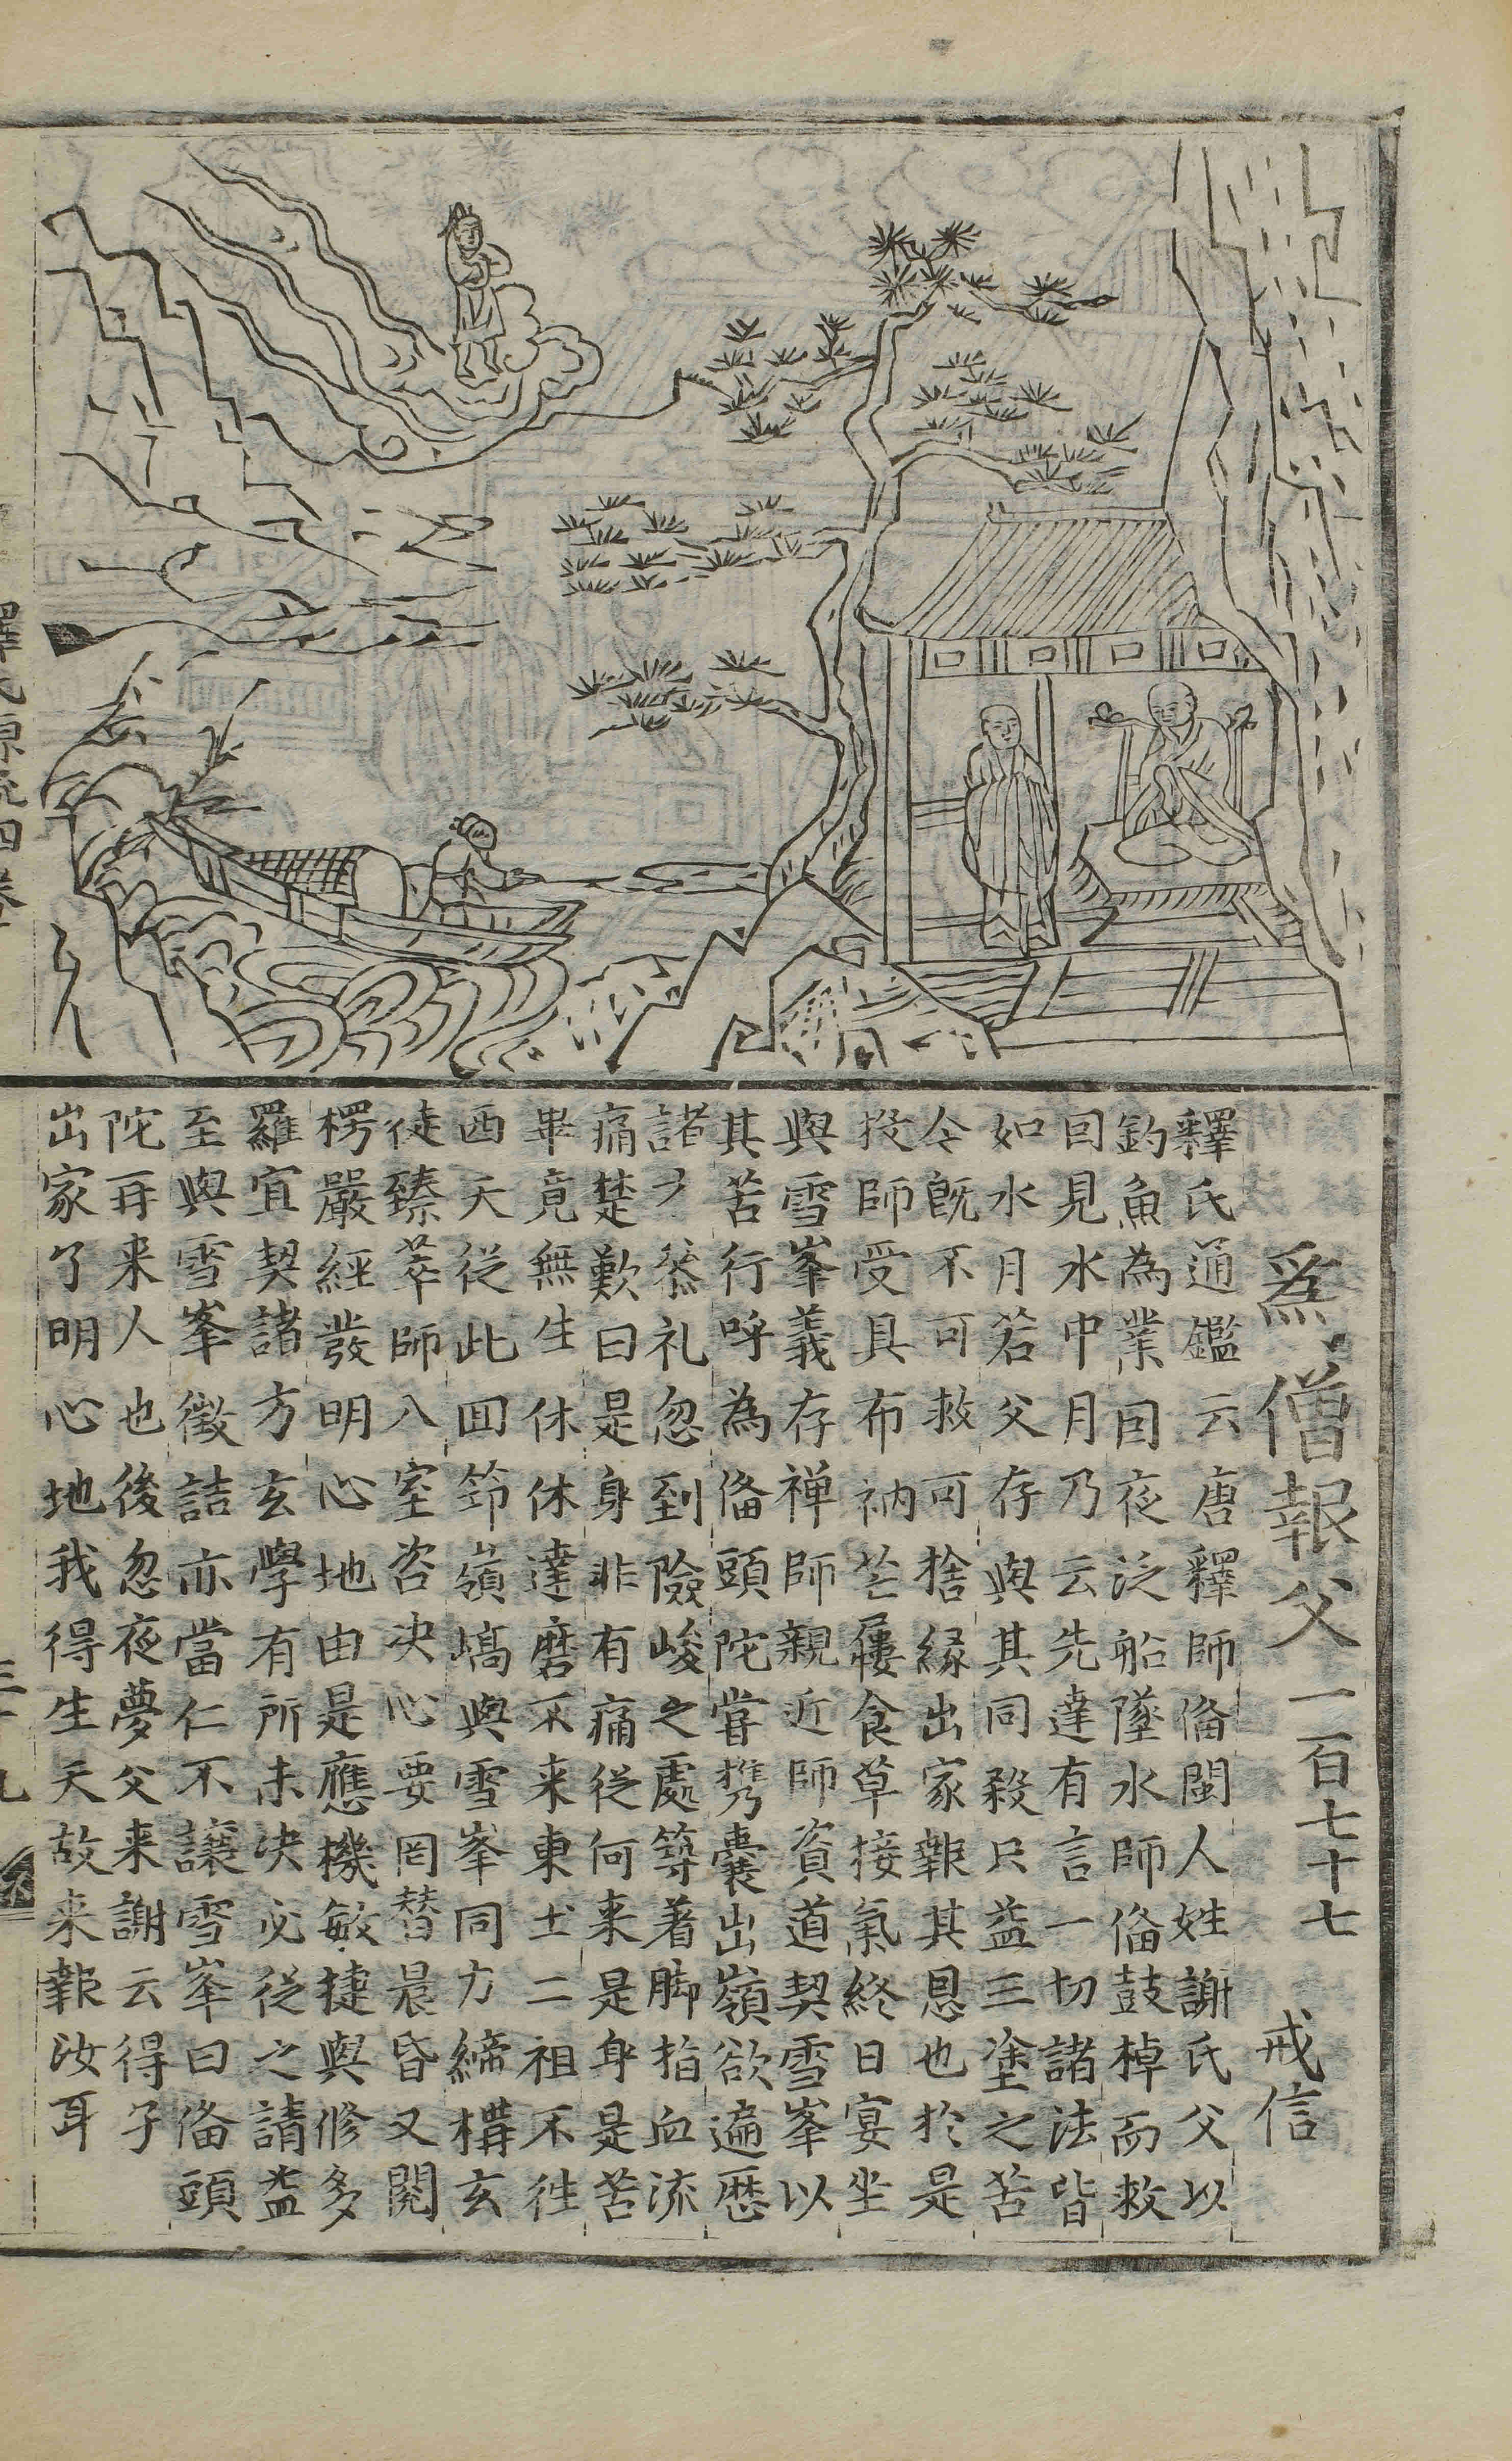 為僧報父 一百七十七 戒信
釋氏通鑑云唐釋師俻閩人姓謝氏父以
釣魚為業因夜泛船墜水師俻鼓棹而救
囙見水中月乃云先達有言一切諸法皆
如水月若父存與其同殺只益三塗之苦
今既不可救可捨緣出家報其恩也於是
投師受具布衲芒屨食草接氣終日宴坐
與雪峯義存禅師親近師資道契雪峯以
其苦行呼為俻頭陀甞携囊出嶺欲遍歷
諸方叅礼忽到險峻之處築着脚指血流
痛楚歎曰是身非有痛從何来是身是苦
畢竟無生休休達磨不来東土二祖不徃
西天從此囬節嶺嵪與雪峯同力締構玄
徒臻萃師入室咨决心要罔替晨昏又閱
楞嚴經發明心地由是應機敏捷與修多
羅宜契諸方玄學有所未决必從之請益
至與雪峯徵詰亦當仁不讓雪峯曰俻頭
陀再来人也後忽夜夢父来謝云得子
出家了明心地我得生天故来報汝耳
釋氏源流四卷